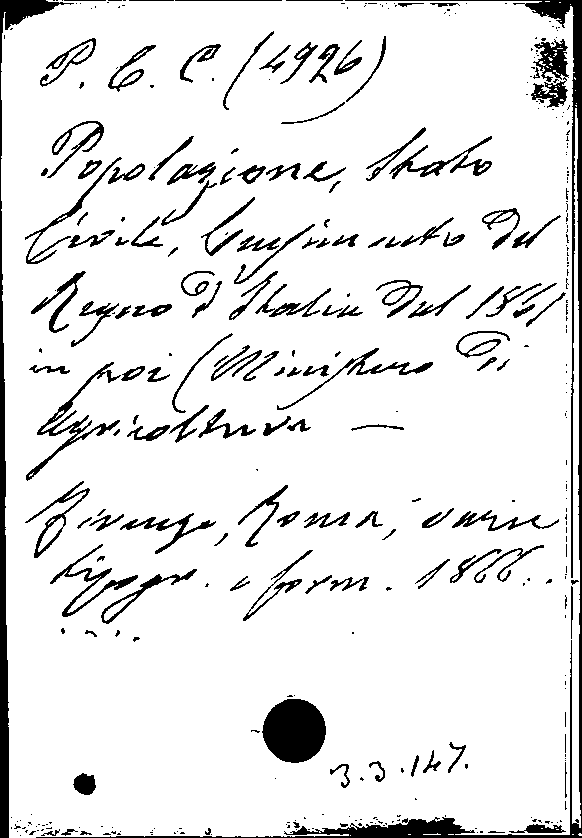 P. C. C. (4926)
Popolazione, Stato
Civile, Censimento del
Regno d'Italia dal 1861
in poi (Ministero di
Agricoltura —
Firenze, Roma, varie
tipogr. e form. 1866..
....
3.3.147.